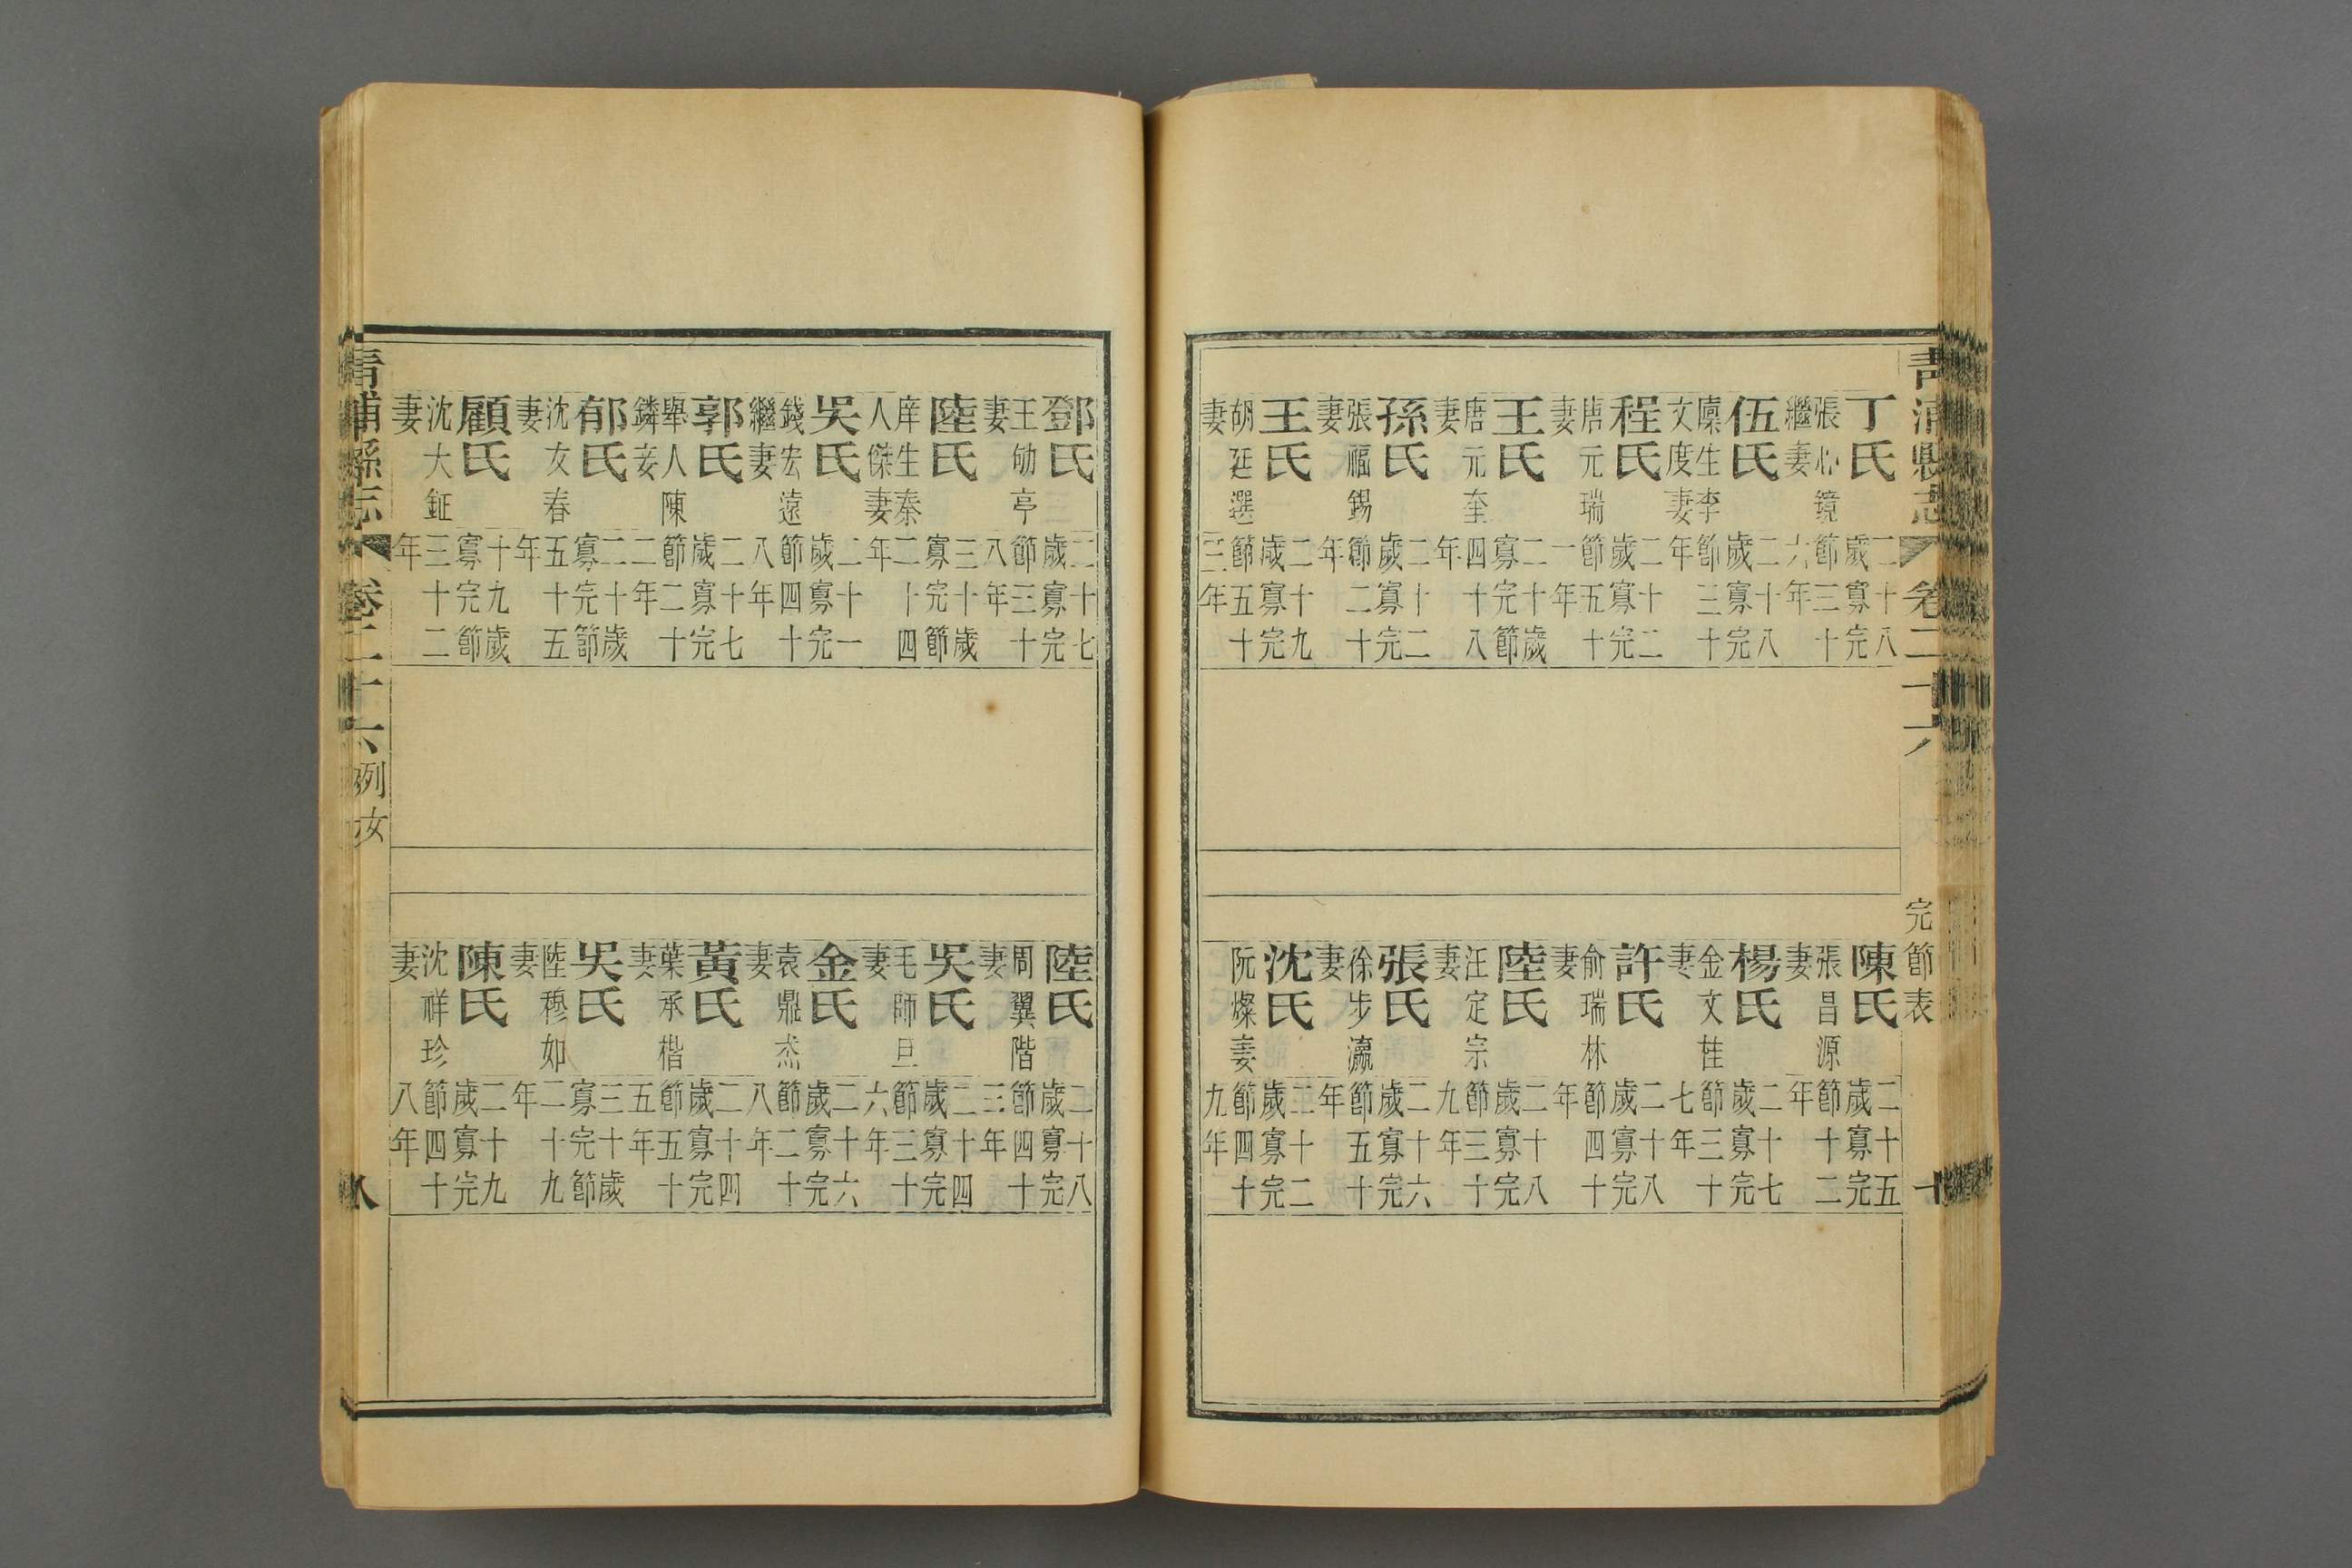 青浦縣志 卷二十六 完節表 十
丁氏
張心鏡
繼妻
二十八
歲寡完
節三十
六年
伍氏
廩生李
文度妻
二十八
歲寡完
節三十
年
程氏
唐元瑞
妻
二十二
歲寡完
節五十
一年
王氏
唐元奎
妻
二十歲
寡完節
四十八
年
孫氏
張福錫
妻
二十二
歲寡完
節二十
年
王氏
胡廷選
妻
二十九
歲寡完
節五十
三年
陳氏
張昌源
妻
二十五
歲寡完
節十二
年
楊氏
金文桂
妻
二十七
歲寡完
節三十
七年
許氏
俞瑞林
妻
二十八
歲寡完
節四十
年
陸氏
汪定宗
妻
二十八
歲寡完
節三十
九年
張氏
徐步瀛
妻
二十六
歲寡完
節五十
年
沈氏
阮燦妻
二十二
歲寡完
節四十
九年
鄧氏
王劬亭
妻
二十七
歲寡完
節三十
八年
陸氏
庠生秦
人傑妻
三十歲
寡完節
二十四
年
吳氏
錢宏遠
繼妻
二十一
歲寡完
節四十
八年
郭氏
舉人陳
鏻妾
二十七
歲寡完
節二十
二年
郁氏
沈友春
妻
二十歲
寡完節
五十五
年
顧氏
沈大鉦
妻
十九歲
寡完節
三十二
年
陸氏
周翼階
妻
二十八
歲寡完
節四十
三年
吳氏
毛師旦
妻
二十四
歲寡完
節三十
六年
金氏
袁鼎烝
妻
二十六
歲寡完
節二十
八年
黃氏
葉承楷
妻
二十四
歲寡完
節五十
五年
吳氏
陸穆如
妻
三十歲
寡完節
二十九
年
陳氏
沈祥珍
妻
二十九
歲寡完
節四十
八年
青浦縣志 卷二十六 列女